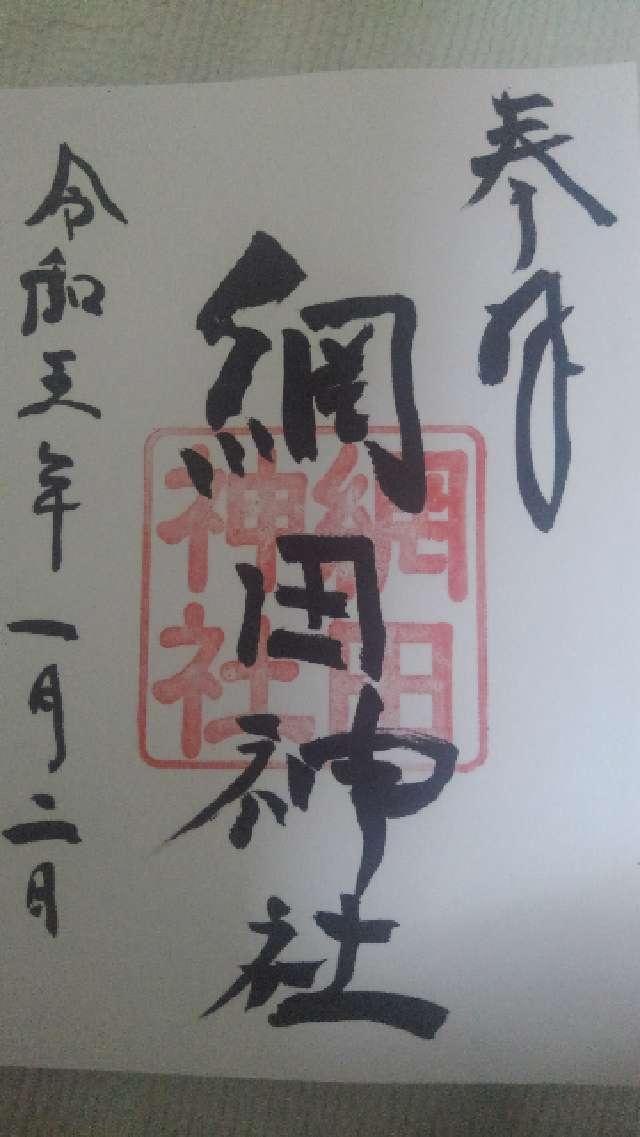 奉拝
網田神社
網田
神社
令和五年一月二日